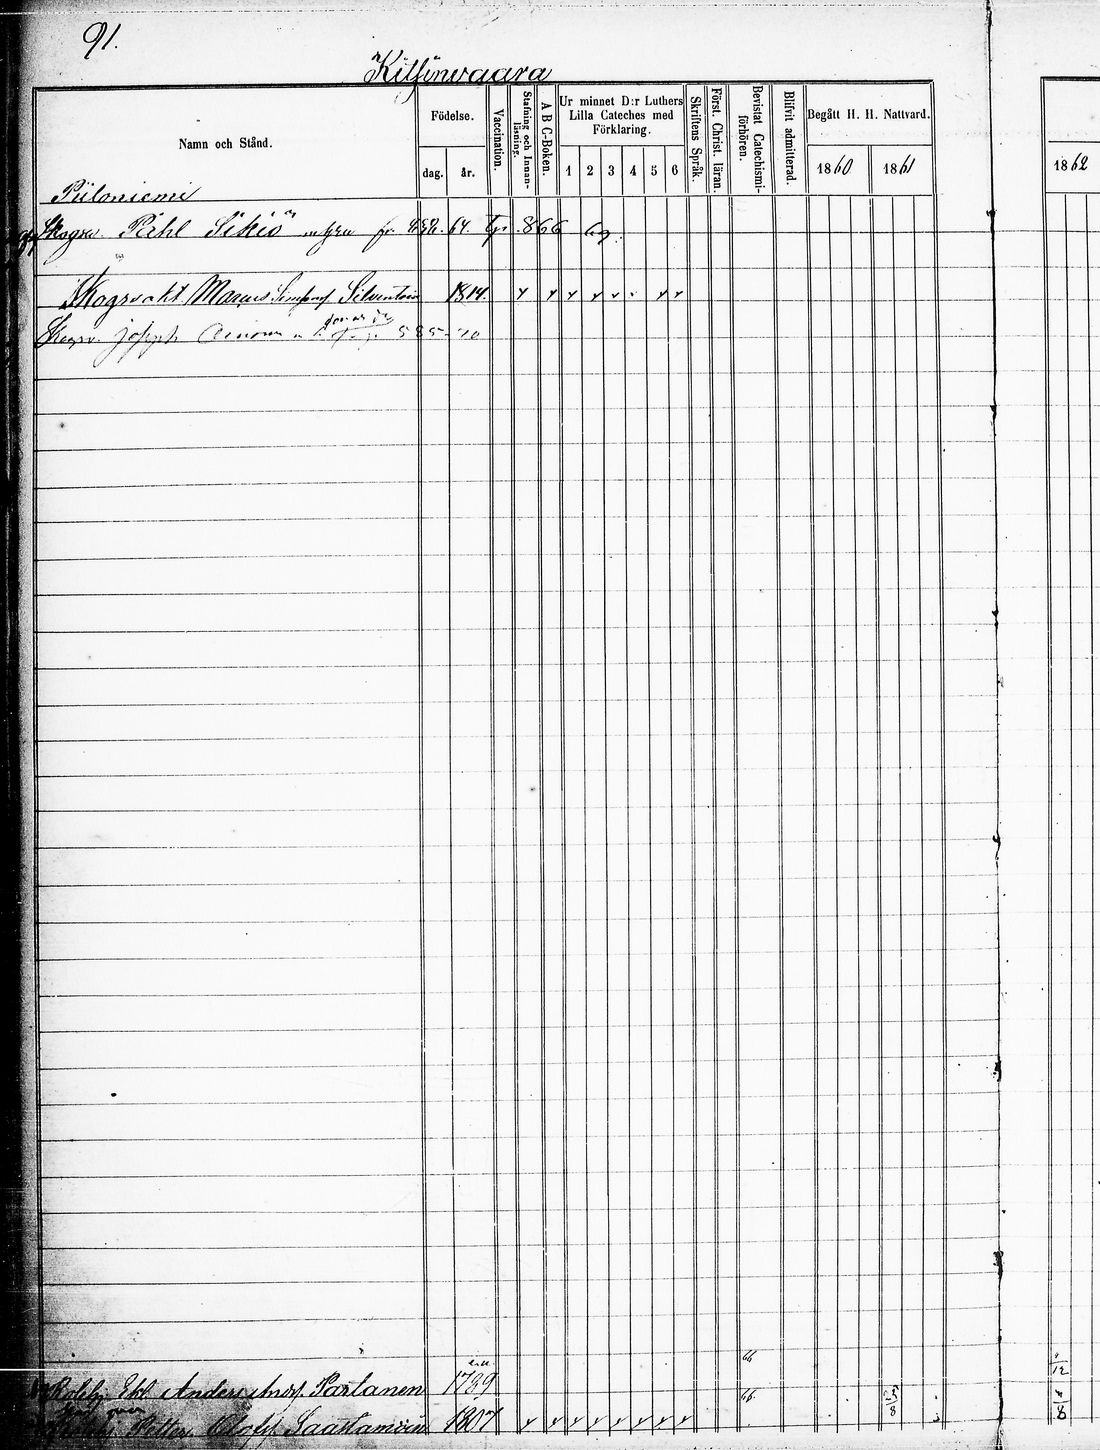 91.
Kilsinvaara
Namn och Stånd.
Födelse.
dag.
år.
Vaccination.
Stafning och Innanläsning.
A B C-Boken.
Ur minnet D:r Luthers
Lilla Cateches med
Förklaring.
1 2 3 4 5 6
Skriftens Språk.
Först. Christ. läran.
Bevistat Catechismi-
förhören.
Blifvit admitterad.
Begått H. H. Nattvard.
1860 1861
1862
Piiloniemi
Skogsv. Påhl Sikiö 64. 866
Skogsvakt Marcus Silventoin 1814.
Skogsv. Joseph 585 70
66
12
Anders Partanen 1789
66
8
8
Petter Olofss. Saastamoin 1807